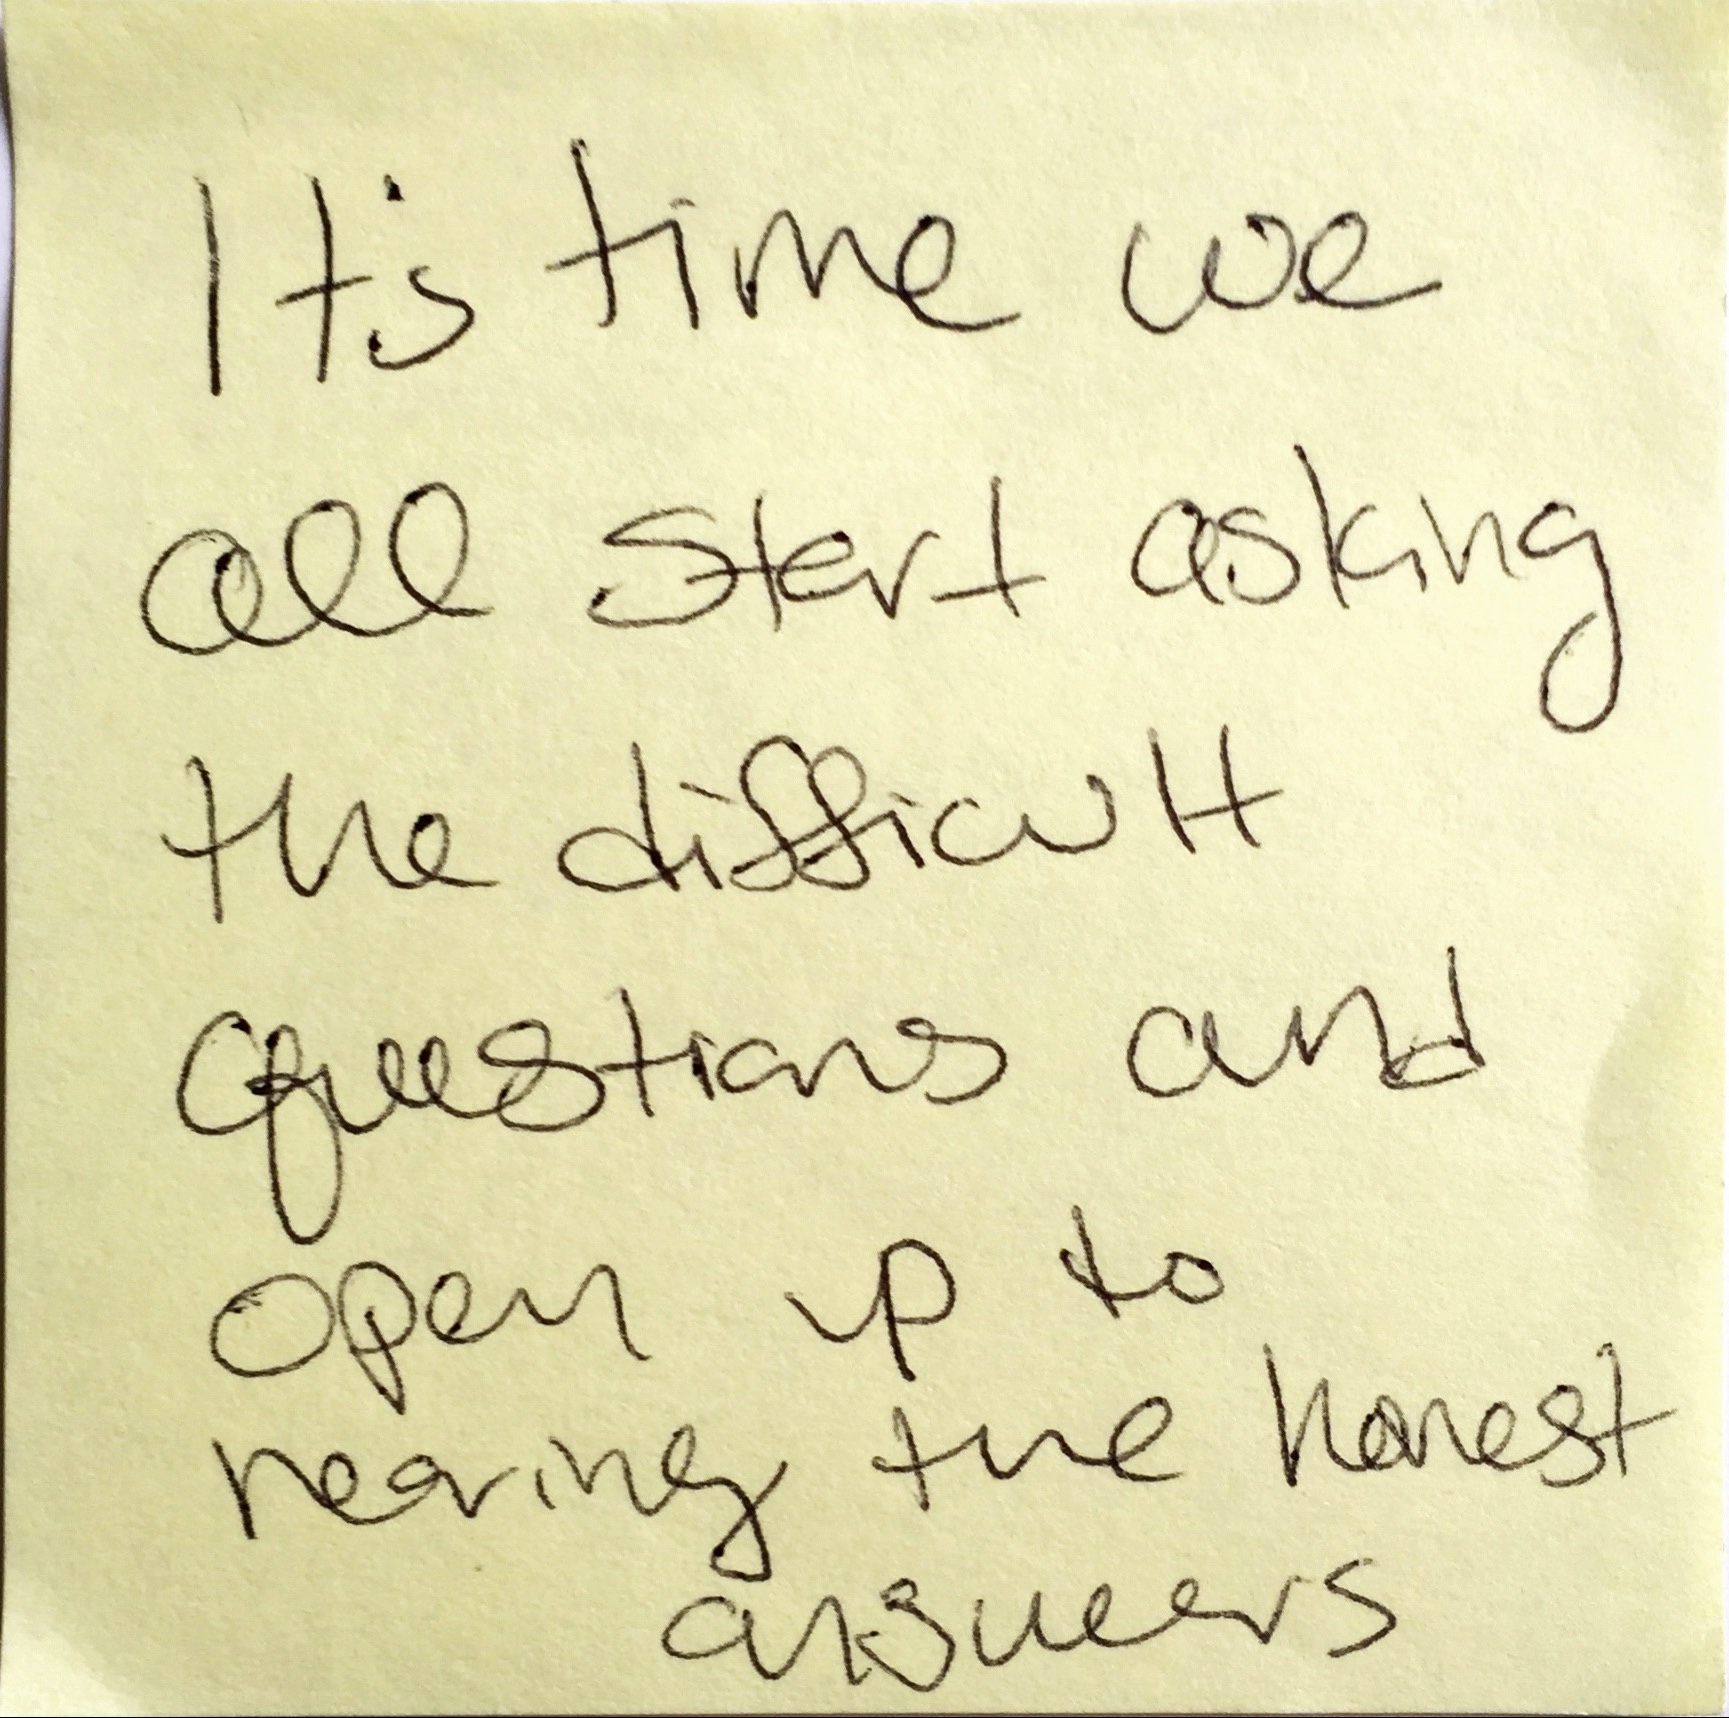 It's time we
all start asking
the difficult
questions and
open up to
hearing the honest
answers